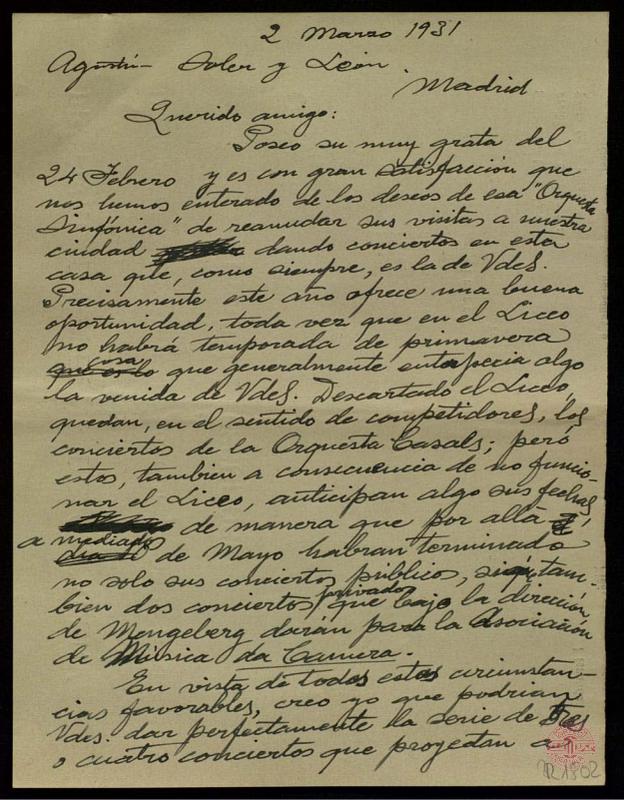 2 Marzo 1931
Agustín Soler y León.
Madrid
Querido amigo:
Poseo su muy grata del
24 Febrero y es con gran satisfacción que
nos hemos enterado de los deseos de esa "Orquesta
Sinfónica" de reanudar sus visitas a nuestra
ciudad dando conciertos en esta
casa que, como siempre, es la de Vdes.
Precisamente este año ofrece una buena
oportunidad, toda vez que en el Liceo
no habrá temporada de primavera
cosa
que es lo que generalmente entorpecia algo
la venida de Vdes. Descartado el Liceo,
quedan, en el sentido de competidores, los
conciertos de la Orquesta Casals; peró
estos, tambien a consecuencia de no funcio-
nar el Liceo, anticipan algo sus fechas,
de manera que por allá
a mediados
de Mayo habran terminado
no solo sus conciertos públicos, sino tam-
privados
bien dos conciertos que bajo la dirección
de Mengelberg darán para la Asociación
de Música da Camera.
En vista de todas estas circunstan-
cias favorables, creo yo que podrian
Vdes. dar perfectamente la serie de tres
o cuatro conciertos que proyectan a
R 1802